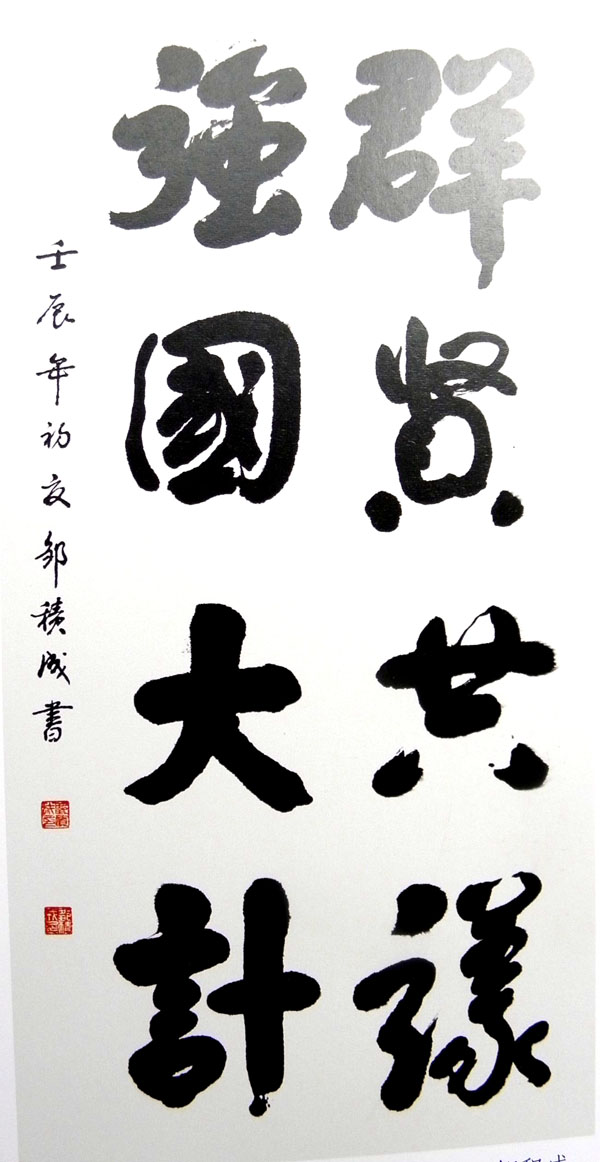 群賢共議
強國大計
壬辰年初夏鄒積成書